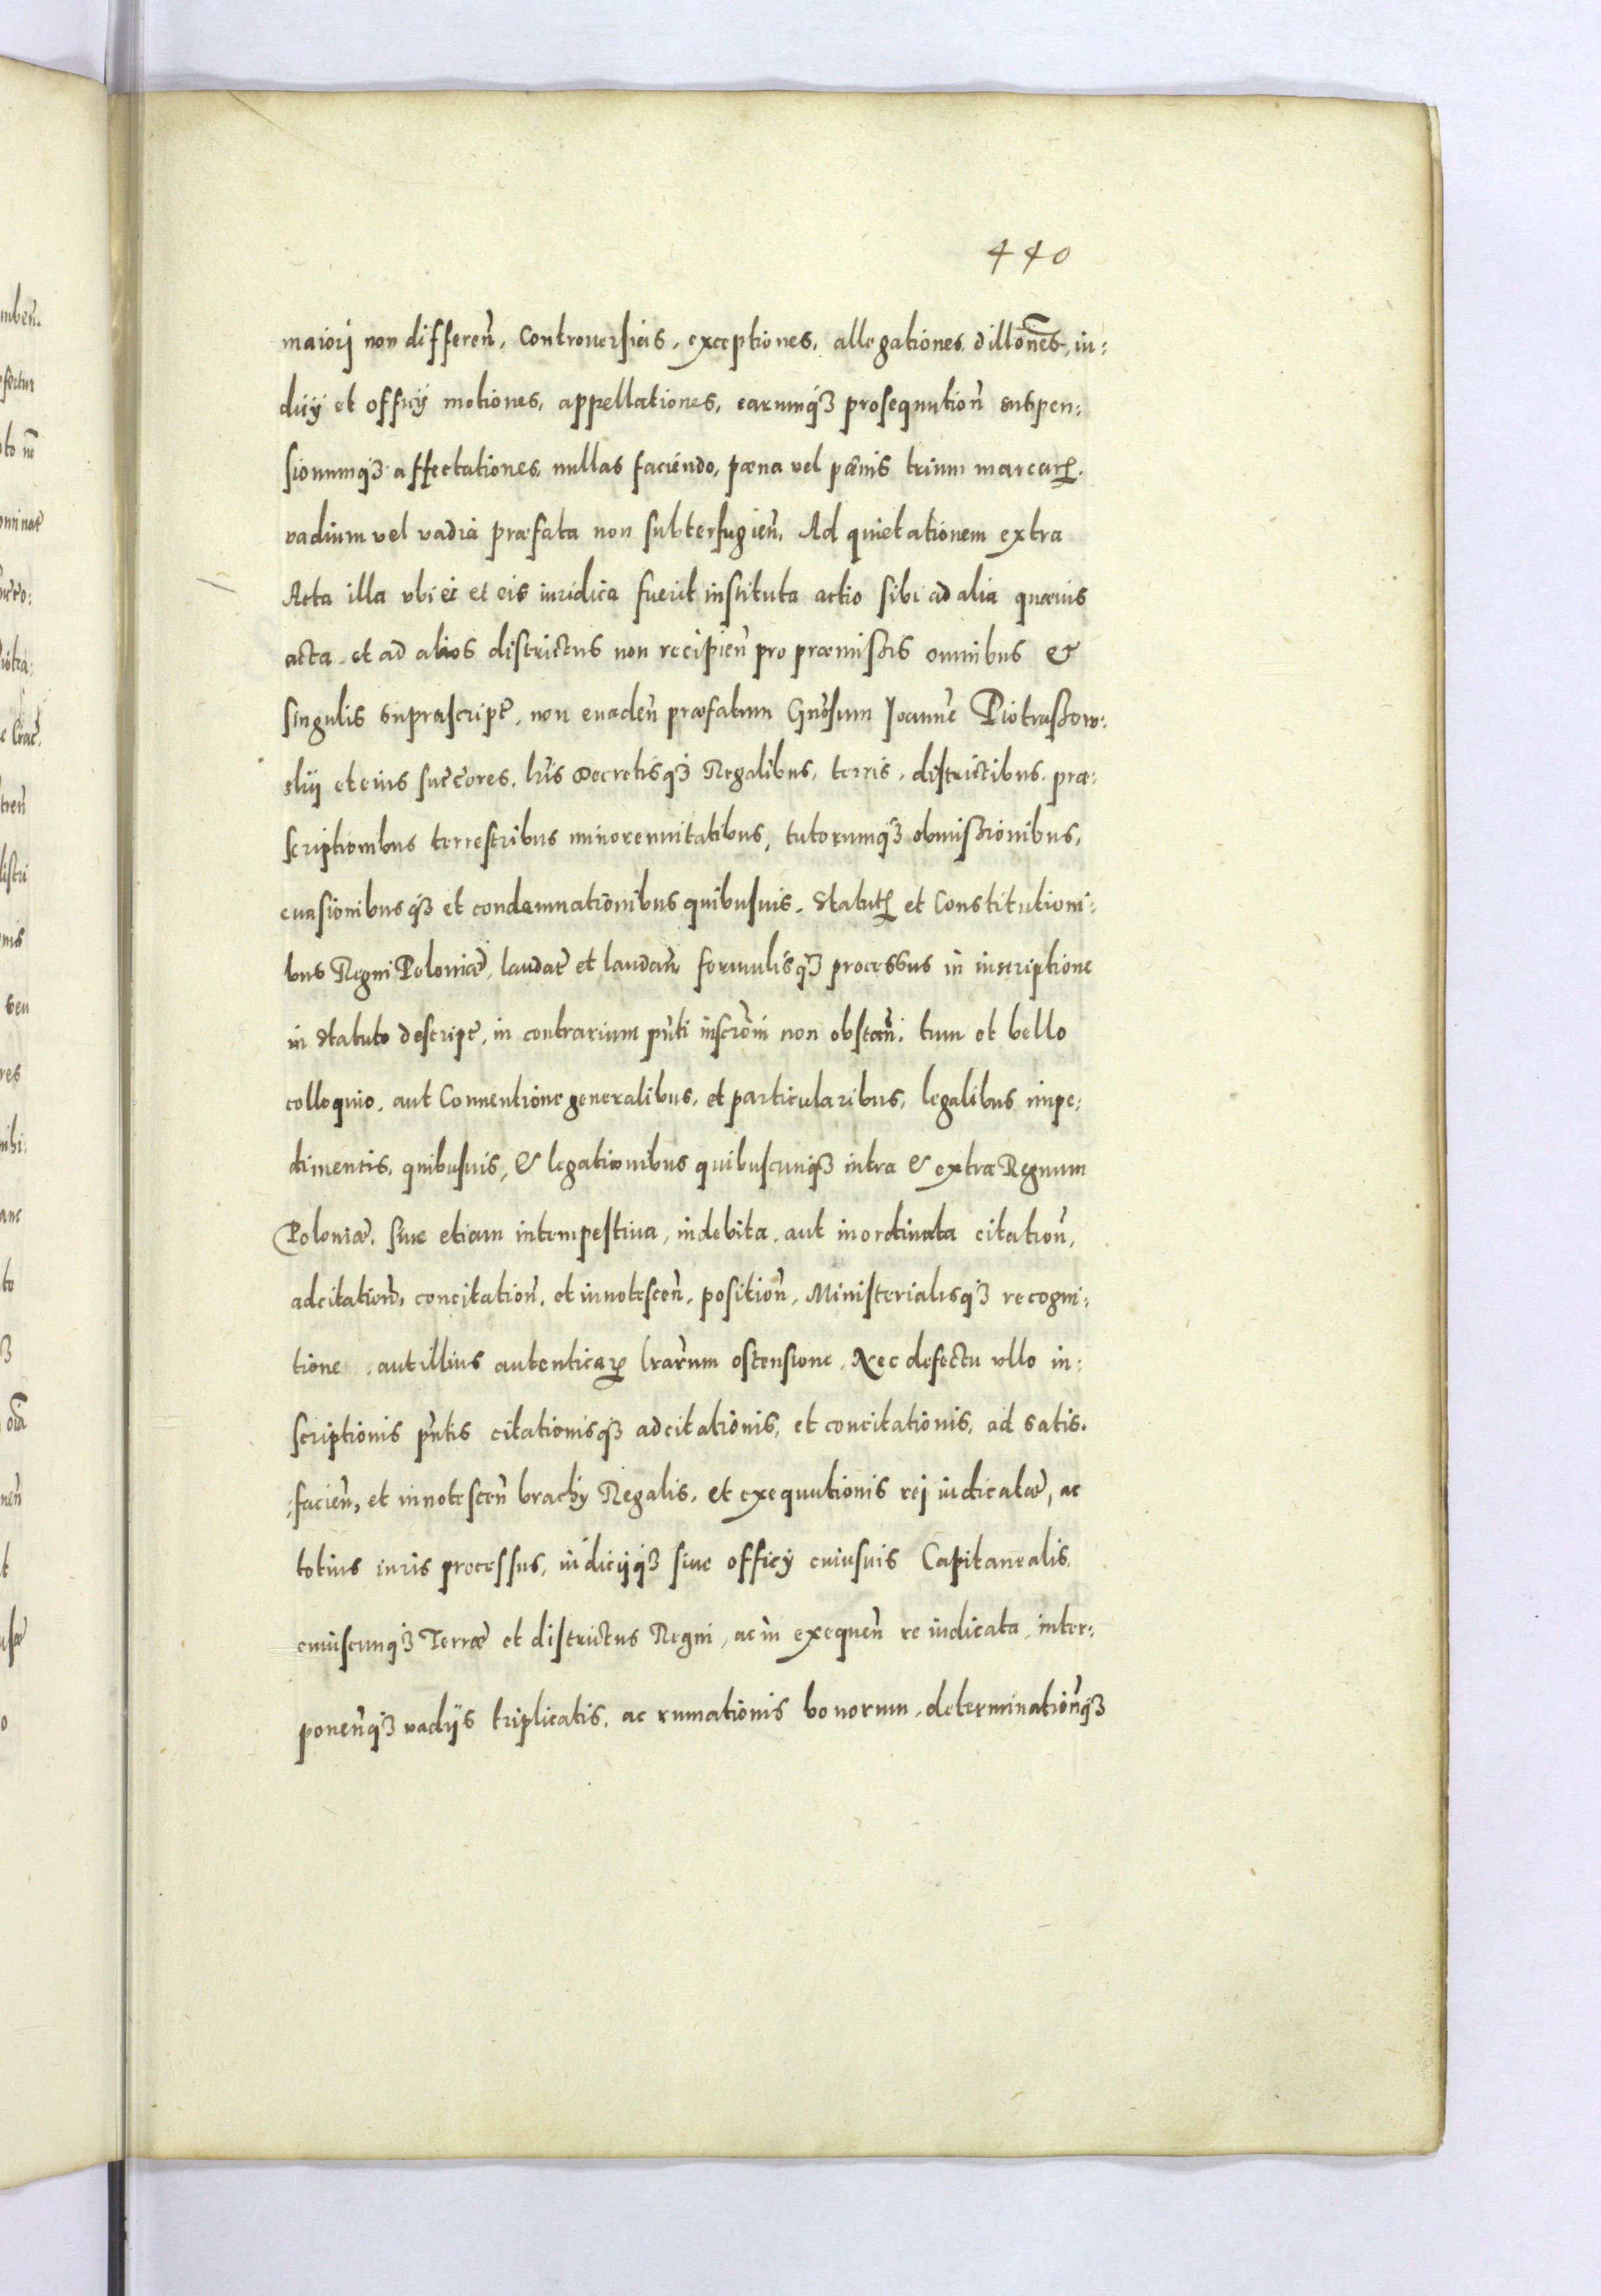 440
maiorj non differen̄, Controuersias, exceptiones, allegationes, dillon̄es, iu:
dicÿ et officÿ motiones, appellationes, earumqꝫ prosequution̄ suspen:
sionumqꝫ affectationes, nullas faciendo, pæna vel pænis trium marcarꝝ.
vadium vel vadia præfata non subterfugien̄, Ad quietationem extra
Acta illa vbi ei et eis iuridica fuerit instituta actio sibi ad alia quævis
acta et ad alios districtus non recipien̄ pro præmissis omnibus &
singulis suprascript̄, non euaden̄ præfatum Gn̄osum Joannē Piotrassow:
skij et eius succ̄ores, lr̄is Decretisqꝫ Regalibus, terris, districtibus, præ:
scriptionibus terrestribus minorennitatibus, tutorumqꝫ obmissionibus,
euasionibusqꝫ et condemnationibus quibusuis, Statutꝭ et Constitutioni:
bus Regni Poloniæ, laudat̄ et laudan̄, formulisqꝫ processus in inscriptione
in Statuto descript̄, in contrarium pn̄ti inscr̄oni non obstan̄, tum et bello
colloquio, aut Conuentione generalibus, et particularibus, legalibus impe:
dimentis, quibusuis, & legationibus quibuscunqꝫ intra & extra Regnum
Poloniæ, siue etiam intempestiua, indebita, aut inordinata citation̄,
adcitation̄, concitation̄, et innotescen̄, position̄, Ministerialisqꝫ recogni:
tione, aut illius autenticarꝝ lr̄arum ostensione, Nec defectu vllo in:
scriptionis pn̄tis citationisqꝫ adcitationis, et concitationis, ad satis.
:facien̄, et innotescen̄ brachÿ Regalis, et exequutionis rej iudicatæ, ac
totius iuris processus, iudicijqꝫ siue officÿ cuiusuis Capitanealis,
cuiuscunqꝫ Terræ et districtus Regni, ac in exequen̄ re iudicata, inter:
ponen̄qꝫ vadijs triplicatis, ac rumationis bonorum, determination̄qꝫ